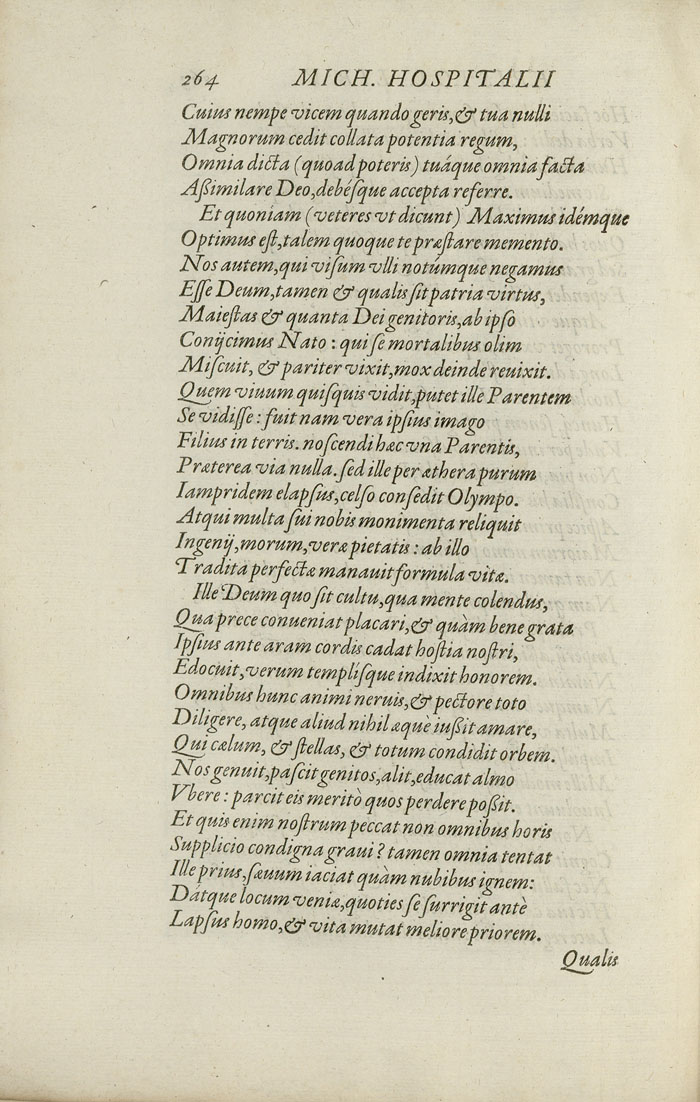 264 MICH. HOSPITALII
Cuius nempe vicem quando geris,& tua nulli
Magnorum cedit collata potentia regum,
Omnia dicta (quoad poteris) tuáque omnia facta
Aßimilare Deo,debésque accepta referre.
Et quoniam (veteres vt dicunt) Maximus idémque
Optimus est,talem quoque te præstare memento.
Nos autem,qui visum vlli notúmque negamus
Esse Deum,tamen & qualis sit patria virtus,
Maiestas & quanta Dei genitoris,ab ipso
Conijcimus Nato : qui se mortalibus olim
Miscuit, & pariter vixit,mox deinde reuixit.
Quem viuum quisquis vidit,putet ille Parentem
Se vidisse : fuit nam vera ipsius imago
Filius in terris. noscendi hæc vna Parentis,
Præterea via nulla. sed ille per æthera purum
Iampridem elapsus,celso consedit Olympo.
Atqui multa sui nobis monimenta reliquit
Ingenij,morum,veræ pietatis : ab illo
Tradita perfectæ manauit formula vitæ.
Ille Deum quo sit cultu,qua mente colendus,
Qua prece conueniat placari,& quàm bene grata
Ipsius ante aram cordis cadat hostia nostri,
Edocuit,verum templísque indixit honorem.
Omnibus hunc animi neruis,& pectore toto
Diligere, atque aliud nihil æquè iußit amare,
Qui cælum, & stellas, & totum condidit orbem.
Nos genuit,pascit genitos,alit,educat almo
Vbere : parcit eis meritò quos perdere poßit.
Et quis enim nostrum peccat non omnibus horis
Supplicio condigna graui ? tamen omnia tentat
Ille prius,sæuum iaciat quàm nubibus ignem:
Dátque locum veniæ,quoties se surrigit antè
Lapsus homo,& vita mutat meliore priorem.
Qualis